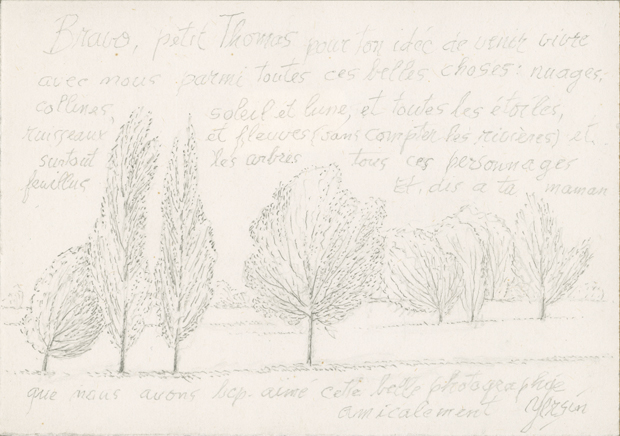 Bravo, petit Thomas pour ton idée de venir vivre
avec nous parmi toutes ces belles choses: nuages,
collines, soleil et lune, et toutes les étoiles,
ruisseaux et fleuves (sans compter les rivières) et
surtout les arbres tous ces personnages
feuillus Et, dis à ta maman
que nous avons bcp. aimé cette belle photographie
amicalement Yersin